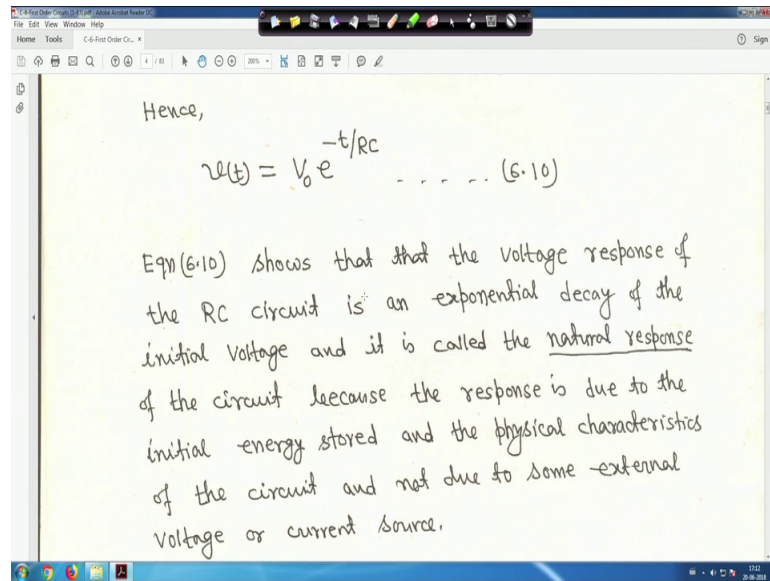 C-6-First Order Circuits [1-83].pdf - Adobe Acrobat Reader DC
File Edit View Window Help
Home Tools C-6-First Order Cir... × Sign
4 / 83 200%
Hence,
v(t) = V₀ e^{-t/RC} - - - - - - (6.10)
Eqn(6.10) shows that that the voltage response of
the RC circuit is an exponential decay of the
initial voltage and it is called the natural response
of the circuit because the response is due to the
initial energy stored and the physical characteristics
of the circuit and not due to some external
voltage or current source.
17:12
20-06-2018